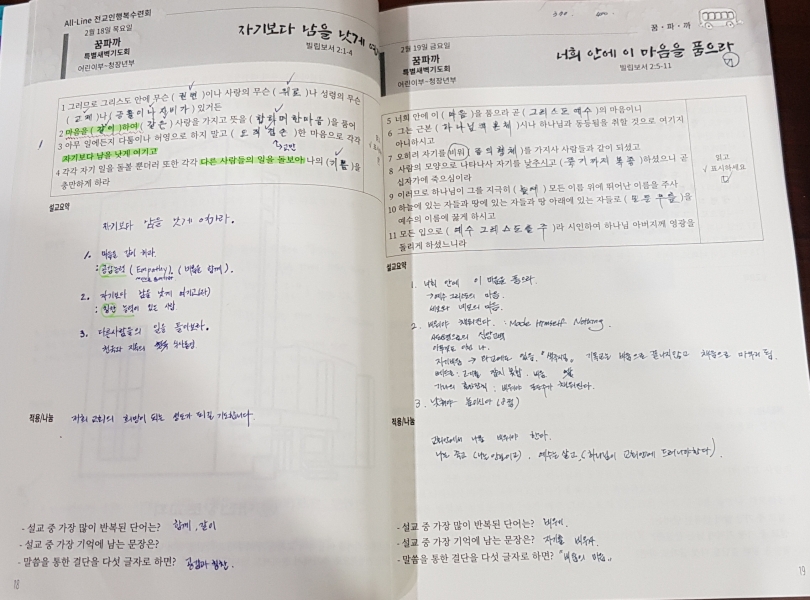 All-Line 전교인행복수련회
2월 18일 목요일
꿈파까
특별새벽기도회
어린이부~청장년부
자기보다 남을 낫게 여
빌립보서 2:1-4
1 그러므로 그리스도 안에 무슨 ( 권면 )이나 사랑의 무슨 ( 위로 )나 성령의 무슨
( 교제 )나 ( 긍휼이나 자비가 ) 있거든
2 마음을 ( 같이 )하여 ( 같은 ) 사랑을 가지고 뜻을 ( 합하며 한마음 )을 품어
3 아무 일에든지 다툼이나 허영으로 하지 말고 ( 오직 겸손 )한 마음으로 각각
자기보다 남을 낫게 여기고
4 각각 자기 일을 돌볼 뿐더러 또한 각각 다른 사람들의 일을 돌보아 나의 ( 기쁨 )을
충만하게 하라
설교요약
자기보다 남을 낫게 여기라.
1. 마음을 같이 하라.
: 공감능력 (Empathy). (마음을 함께).
2. 자기보다 남을 낫게 여기고(라)
: 칭찬 능력이 있는 사람
3. 다른사람들의 일을 돌아보라.
적용/나눔
저희 교회의 희망이 되는 성도가 되길 기도합니다.
- 설교 중 가장 많이 반복된 단어는? 함께, 같이
- 설교 중 가장 기억에 남는 문장은?
- 말씀을 통한 결단을 다섯 글자로 하면? 공감과 칭찬.
18
꿈·파·까
2월 19일 금요일
꿈파까
특별새벽기도회
어린이부~청장년부
너희 안에 이 마음을 품으라
빌립보서 2:5-11
5 너희 안에 이 ( 마음 )을 품으라 곧 ( 그리스도 예수 )의 마음이니
6 그는 근본 ( 하나님의 본체 )시나 하나님과 동등됨을 취할 것으로 여기지
아니하시고
7 오히려 자기를 (비워) ( 종의 형체 )를 가지사 사람들과 같이 되셨고
8 사람의 모양으로 나타나사 자기를 낮추시고 ( 죽기까지 복종 )하셨으니 곧
십자가에 죽으심이라
9 이러므로 하나님이 그를 지극히 ( 높여 ) 모든 이름 위에 뛰어난 이름을 주사
10 하늘에 있는 자들과 땅에 있는 자들과 땅 아래에 있는 자들로 ( 모든 무릎 )을
예수의 이름에 꿇게 하시고
11 모든 입으로 ( 예수 그리스도를 주 )라 시인하여 하나님 아버지께 영광을
돌리게 하셨느니라
읽고
√ 표시하세요
설교요약
1. 너희 안에 이 마음을 품으라.
→예수 그리스도의 마음.
2. 비워야 채워진다. : Made Himself Nothing.
3. 낮춰야 높이신다 (8절)
적용/나눔
교회안에서 나를 비워야 한다.
나는 죽고 (나는 안보이고). 예수는 살고. (하나님이 교회안에 드러나야한다).
- 설교 중 가장 많이 반복된 단어는? 비워.
- 설교 중 가장 기억에 남는 문장은? 자기를 비워라.
- 말씀을 통한 결단을 다섯 글자로 하면? "비움의 마음"
19